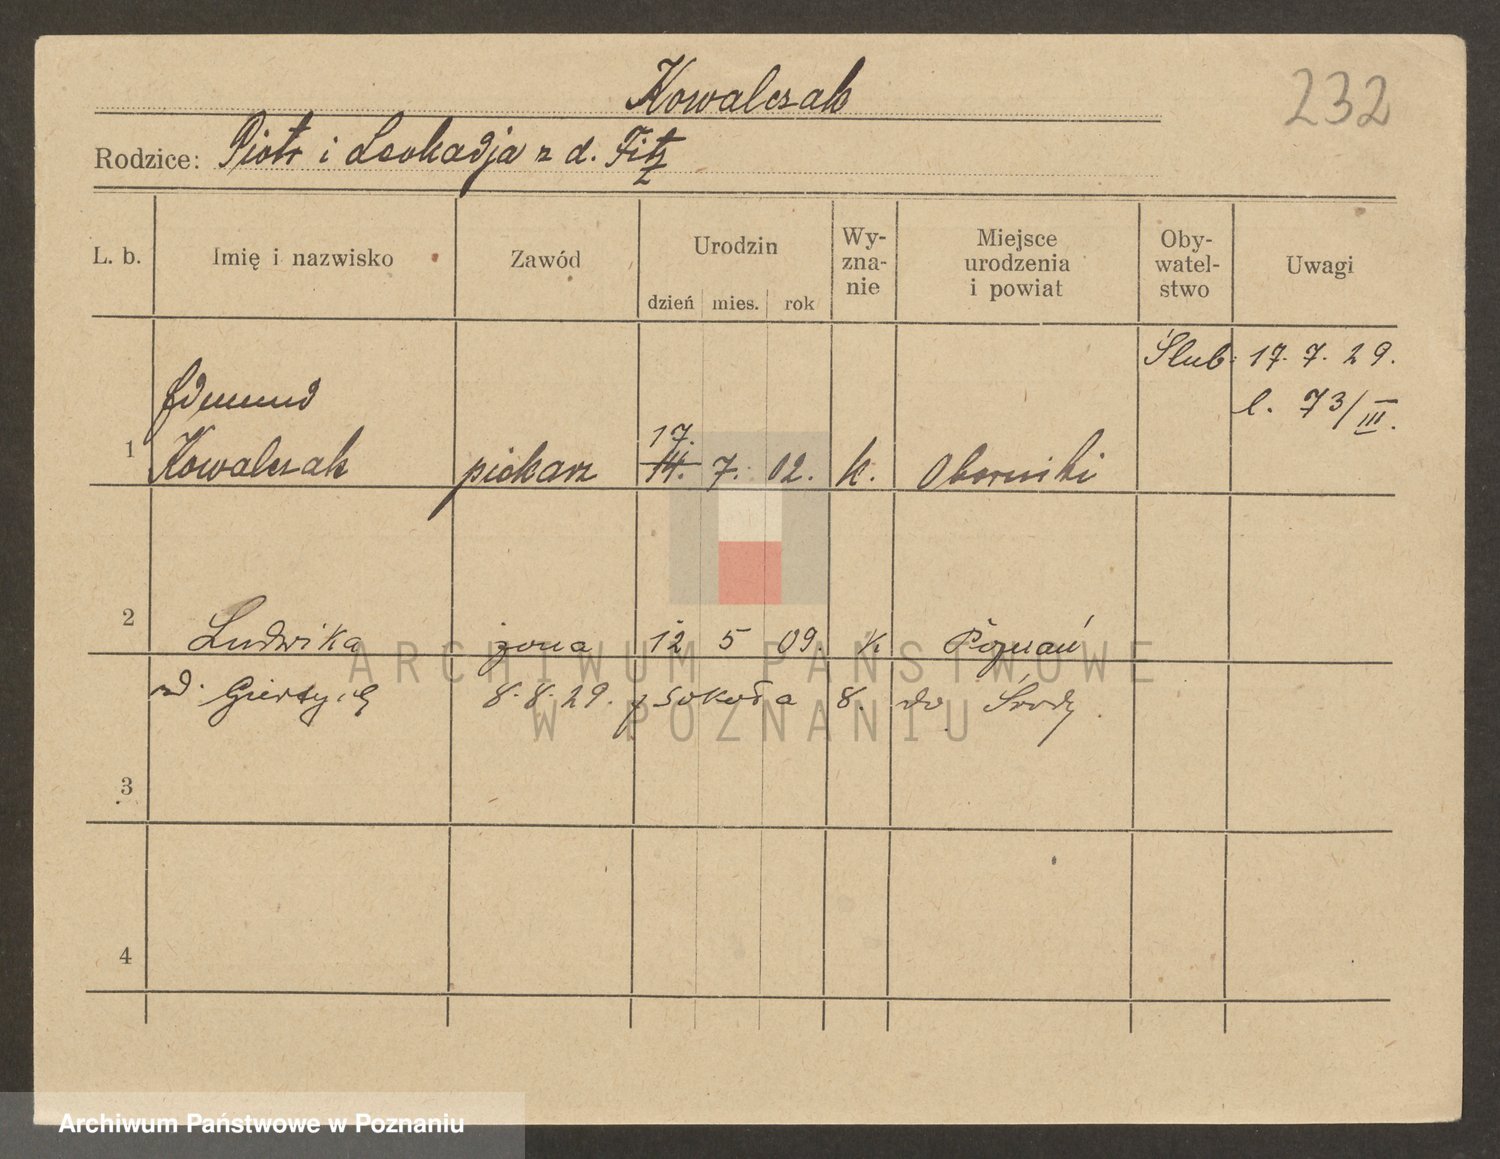 Kowalczak
232
Rodzice: Piotr i Leokadja z d. Fitz
L. b. Imię i nazwisko Zawód Urodzin dzień mies. rok Wy-zna-nie Miejsce urodzenia i powiat Oby-watel-stwo Uwagi
Ślub: 17. 7. 29.
l. 73/III.
Edmund
17.
1 Kowalczak piekarz 14. 7. 02. k. Oborniki
2 Ludwika żona 12 5 09. k Poznań
ARCHIWUM PAŃSTWOWE
8.8.29. z Sokoła 8. do Środy
W POZNANIU
3
4
Archiwum Państwowe w Poznaniu